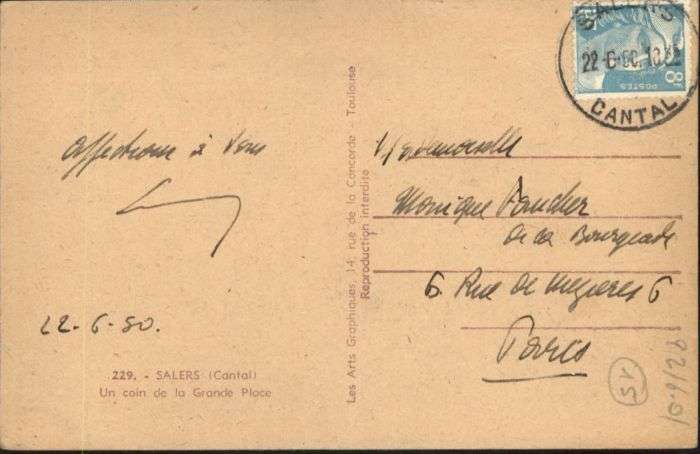 Affectueux à tous
22-6-50.
229. - SALERS (Cantal)
Un coin de la Grande Place
Les Arts Graphiques, 14, rue de la Concorde - Toulouse
Reproduction interdite
SALERS
22-6-50. 10
CANTAL
POSTES
8F
Mademoiselle
Monique Faucher
de la Bourgeade
6 Rue de Mezieres 6
Paris